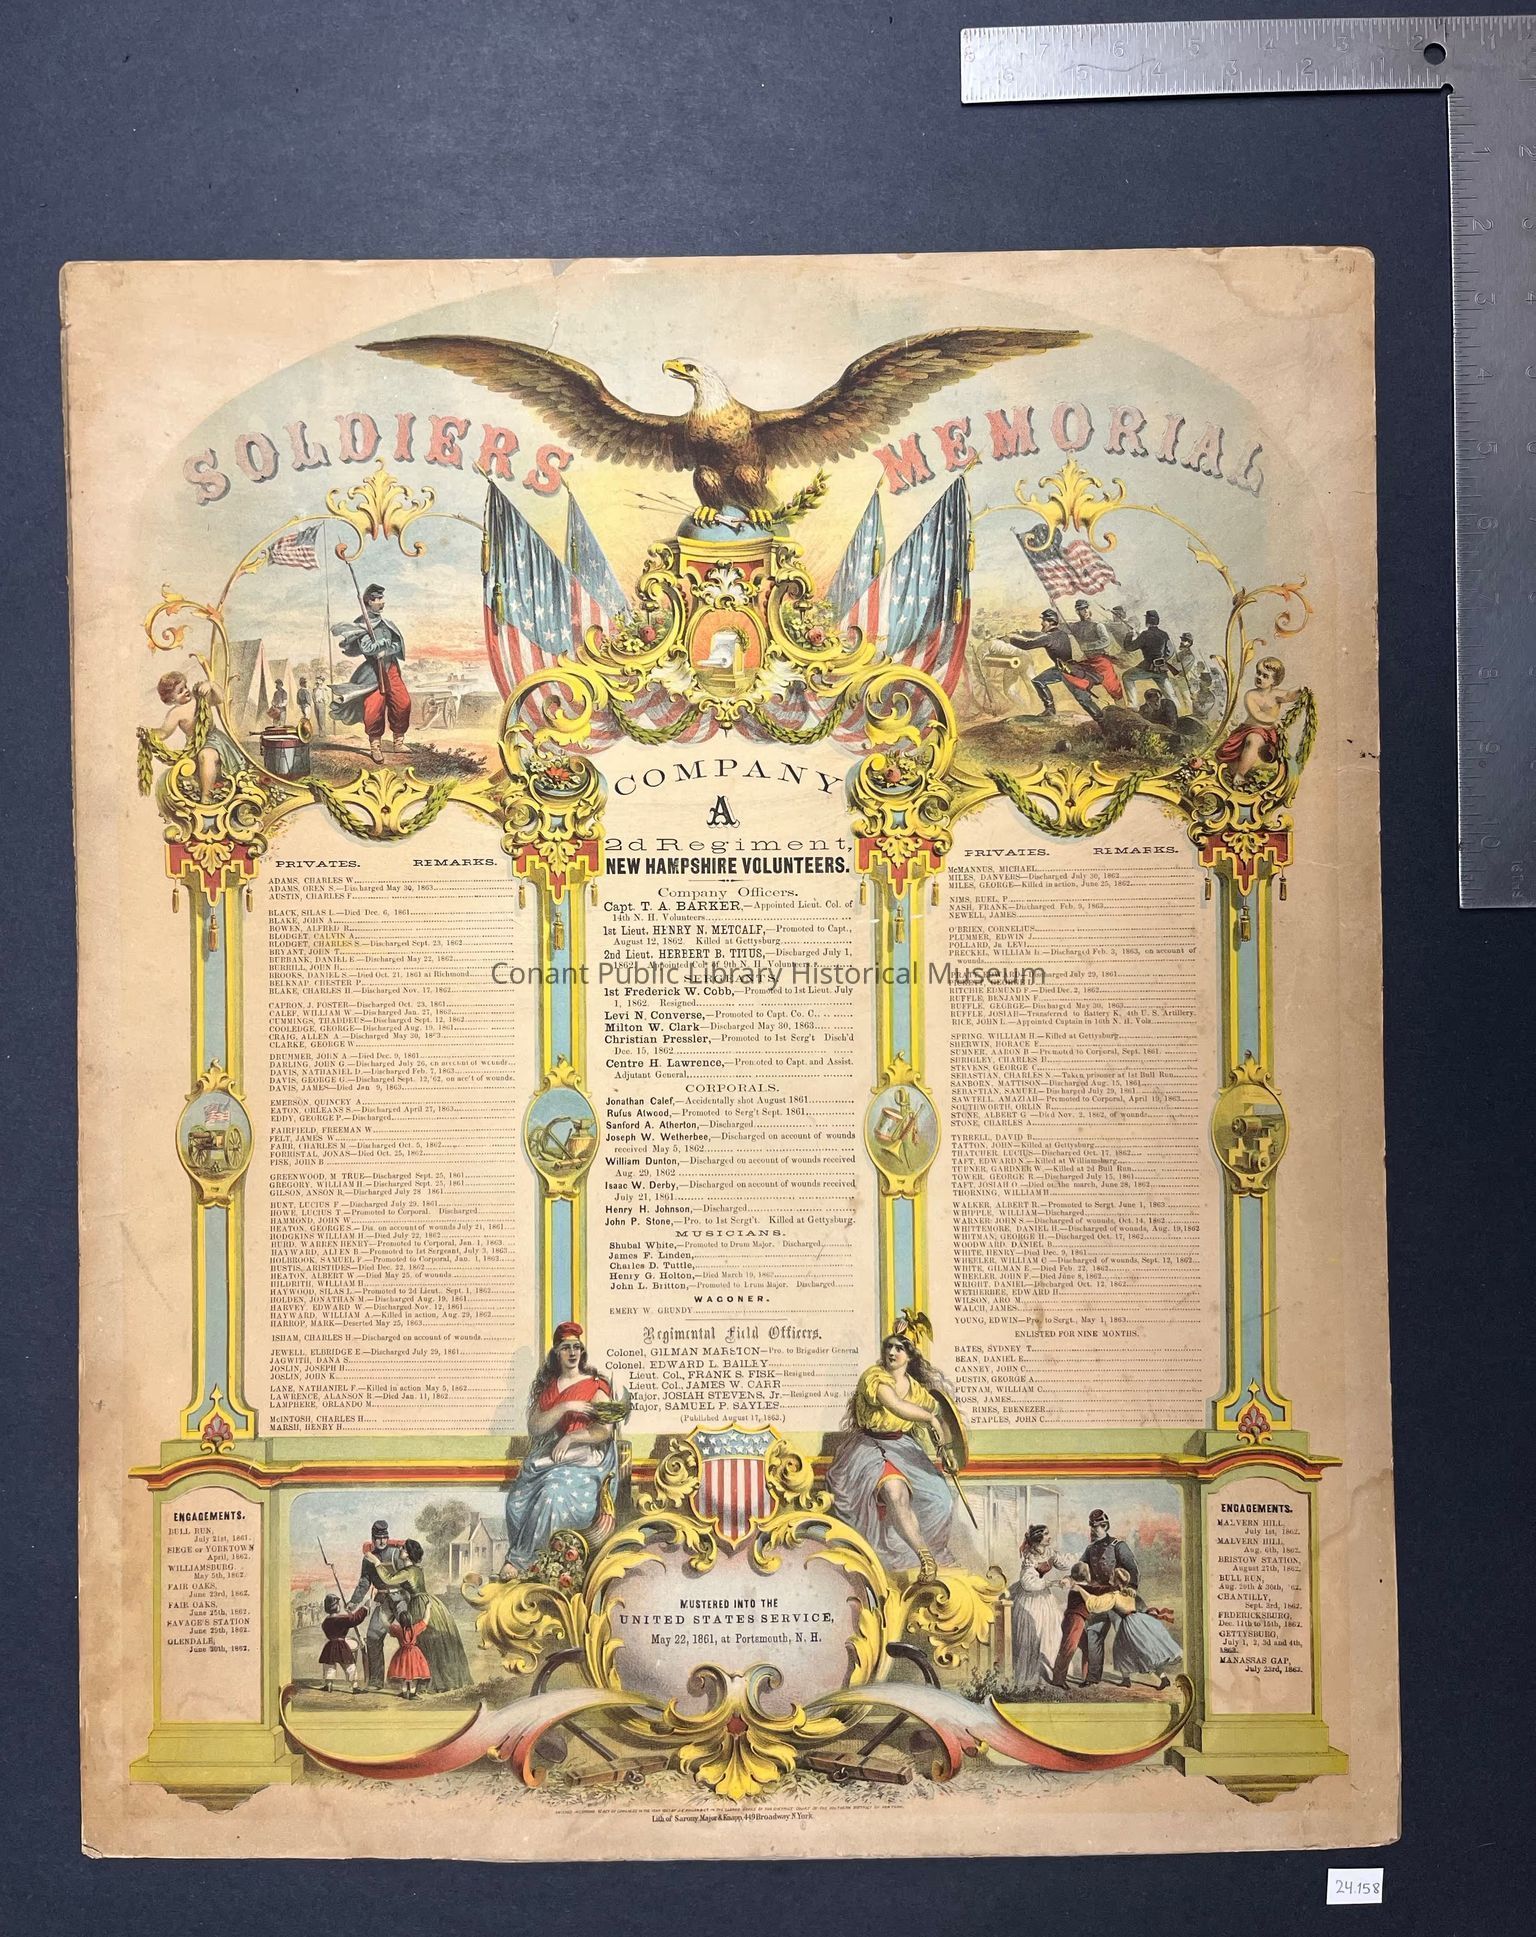 SOLDIERS MEMORIAL
COMPANY
A
2d Regiment,
NEW HAMPSHIRE VOLUNTEERS.
Company Officers.
Capt. T. A. BARKER,—Appointed Lieut. Col. of
14th N. H. Volunteers
1st Lieut. HENRY N. METCALF,—Promoted to Capt.,
August 12, 1862. Killed at Gettysburg
2nd Lieut. HERBERT B. TITUS,—Discharged July 1,
1862. Appointed Col. of 9th N. H. Volunteers
SERGEANTS.
1st Frederick W. Cobb,—Promoted to 1st Lieut. July
1, 1862. Resigned
Levi N. Converse,—Promoted to Capt. Co. C.
Milton W. Clark—Discharged May 30, 1863
Christian Pressler,—Promoted to 1st Serg't Disch'd
Dec. 15, 1862
Centre H. Lawrence,—Promoted to Capt. and Assist.
Adjutant General
CORPORALS.
Jonathan Calef,—Accidentally shot August 1861
Rufus Atwood,—Promoted to Serg't Sept. 1861
Sanford A. Atherton,—Discharged
Joseph W. Wetherbee,—Discharged on account of wounds
received May 5, 1862
William Dunton,—Discharged on account of wounds received
Aug. 29, 1862
Isaac W. Derby,—Discharged on account of wounds received
July 21, 1861
Henry H. Johnson,—Discharged
John P. Stone,—Pro. to 1st Sergt't. Killed at Gettysburg.
MUSICIANS.
Shubal White,—Promoted to Drum Major. Discharged
James F. Linden,
Charles D. Tuttle,
Henry G. Holton,—Died March 19, 1862
John L. Britton,—Promoted to Drum Major. Discharged
WAGONER.
EMERY W. GRUNDY
Regimental Field Officers.
Colonel, GILMAN MARSTON—Pro. to Brigadier General
Colonel. EDWARD L. BAILEY
Lieut. Col., FRANK S. FISK—Resigned
Lieut. Col., JAMES W. CARR
Major, JOSIAH STEVENS, Jr.—Resigned Aug.
Major, SAMUEL P. SAYLES
(Published August 17, 1863.)
PRIVATES. REMARKS.
ADAMS, CHARLES W.
ADAMS, OREN S.—Discharged May 30, 1863
AUSTIN, CHARLES F.
BLACK, SILAS L.—Died Dec. 6, 1861
BLAKE, JOHN A.
BOWEN, ALFRED R.
BLODGET, CALVIN A.
BLODGET, CHARLES S.—Discharged Sept. 23, 1862
BRYANT, JOHN T.
BURBANK, DANIEL E.—Discharged May 22, 1862
BURRILL, JOHN H.
BROOKS, DANIEL S.—Died Oct. 21, 1861 at Richmond
BELKNAP, CHESTER P.
BLAKE, CHARLES H.—Discharged Nov. 17, 1862
CAPRON, J. FOSTER—Discharged Oct. 23, 1861
CALEF, WILLIAM W.—Discharged Jan. 27, 1862
CUMMINGS, THADDEUS—Discharged Sept. 12, 1862
COOLEDGE, GEORGE—Discharged Aug. 19, 1861
CRAIG, ALLEN A—Discharged May 30, 1863
CLARKE, GEORGE W.
DRUMMER, JOHN A—Died Dec. 9, 1861
DARLING, JOHN G—Discharged July 26, on account of wounds
DAVIS, NATHANIEL D.—Discharged Feb. 7, 1863
DAVIS, GEORGE G.—Discharged Sept. 12, '62, on acc't of wounds.
DAVIS, JAMES—Died Jan 9, 1863
EMERSON, QUINCEY A
EATON, ORLEANS S.—Discharged April 27, 1863
EDDY, GEORGE P.—Discharged
FAIRFIELD, FREEMAN W
FELT, JAMES W.
FARR, CHARLES M—Discharged Oct. 5, 1862
FORRISTAL, JONAS—Died Oct. 25, 1862
FISK, JOHN B
GREENWOOD, M TRUE—Discharged Sept. 25, 1861
GREGORY, WILLIAM H.—Discharged Sept. 25, 1861
GILSON, ANSON R.—Discharged July 28 1861
HUNT, LUCIUS F—Discharged July 29, 1861
HOWE, LUCIUS T.—Promoted to Corporal. Discharged
HAMMOND, JOHN W.
HEATON, GEORGE S.—Dis. on account of wounds July 21, 1861
HODGKINS WILLIAM H.—Died July 22, 1862
HURD, WARREN HENRY—Promoted to Corporal, Jan. 1, 1863
HAYWARD, ALLEN B—Promoted to 1st Sergeant, July 3, 1863
HOLBROOK, SAMUEL F—Promoted to Corporal, Jan. 1, 1863
HUSTIS, ARISTIDES—Died Dec. 22, 1862
HEATON, ALBERT W—Died May 25, of wounds
HILDRITH, WILLIAM H
HAYWOOD, SILAS L—Promoted to 2d Lieut., Sept. 1, 1862
HOLDEN, JONATHAN M—Discharged Aug. 19, 1861
HARVEY, EDWARD W.—Discharged Nov. 12, 1861
HAYWARD, WILLIAM A.—Killed in action, Aug. 29, 1862
HARROP, MARK—Deserted May 25, 1863
ISHAM, CHARLES H—Discharged on account of wounds
JEWELL, ELBRIDGE E—Discharged July 29, 1861
JAGWITH, DANA S.
JOSLIN, JOSEPH H
JOSLIN, JOHN K.
LANE, NATHANIEL F.—Killed in action May 5, 1862
LAWRENCE, ALANSON R—Died Jan. 11, 1862
LAMPHERE, ORLANDO M.
McINTOSH, CHARLES H
MARSH, HENRY H
PRIVATES. REMARKS.
McMANNUS, MICHAEL
MILES, DANVERS—Discharged July 30, 1862
MILES, GEORGE—Killed in action, June 25, 1862
NIMS, RUEL, P.
NASH, FRANK—Discharged Feb. 9, 1863
NEWELL, JAMES
O'BRIEN, CORNELIUS
PLUMMER, EDWIN J.
POLLARD, Jn. LEVI
PRECKEL, WILLIAM E—Discharged Feb. 3, 1863, on account of
wounds
PRATT, EDWARD—Discharged July 29, 1861
RITCHIE EDMUND F—Died Dec. 2, 1862
RUFFLE, BENJAMIN F
RUFFLE, GEORGE—Discharged May 30, 1863
RUFFLE, JOSIAH—Transferred to Battery K, 4th U. S. Artillery.
RICE, JOHN L—Appointed Captain in 16th N. H. Vols
SPRING, WILLIAM H—Killed at Gettysburg
SHERWIN, HORACE E
SUMNER, AARON B—Promoted to Corporal, Sept. 1861.
SHRIGLEY, CHARLES D.
STEVENS, GEORGE C
SEBASTIAN, CHARLES N—Taken prisoner at 1st Bull Run
SANBORN, MATTISON—Discharged Aug. 15, 1861
SEBASTIAN, SAMUEL—Discharged July 29, 1861
SAWTELL, AMAZIAH—Promoted to Corporal, April 19, 1863
SOUTHWORTH, ORLIN R.
STONE, ALBERT G—Died Nov. 2, 1862, of wounds
STONE, CHARLES A
TYRRELL, DAVID B
TATTON, JOHN—Killed at Gettysburg
THATCHER, LUCIUS—Discharged Oct. 17, 1862
TAFT, EDWARD N—Killed at Williamsburg
TURNER, GARDNER W—Killed at 2d Bull Run
TOWER, GEORGE R—Discharged July 15, 1861
TAFT, JOSIAH O—Died on the march, June 28, 1862
THORNING, WILLIAM H
WALKER, ALBERT R.—Promoted to Sergt. June 1, 1863
WHIPPLE, WILLIAM—Discharged
WARNER, JOHN S.—Discharged of wounds, Oct. 14, 1862
WHITTEMORE, DANIEL B—Discharged of wounds, Aug. 19, 1862
WHITMAN, GEORGE H—Discharged Oct. 17, 1862
WOODWARD, DANIEL B
WHITE, HENRY—Died Dec. 9, 1861
WHEELER, WILLIAM C—Discharged of wounds, Sept. 12, 1862
WHITE, GILMAN E—Died Feb. 22, 1862
WHEELER, JOHN F—Died June 8, 1862
WRIGHT, DANIEL—Discharged Oct. 12, 1862
WETHERBEE, EDWARD H
WILSON, ARO M.
WALCH, JAMES
YOUNG, EDWIN—Pro. to Sergt., May 1, 1863
ENLISTED FOR NINE MONTHS.
BATES, SYDNEY T
BEAN, DANIEL E
CANNEY, JOHN C
DUSTIN, GEORGE A
PUTNAM, WILLIAM C
ROSS, JAMES
RIMES, EBENEZER
STAPLES, JOHN C
ENGAGEMENTS.
BULL RUN,
July 21st, 1861.
SIEGE of YORKTOWN
April, 1862.
WILLIAMSBURG.
May 5th, 1862.
FAIR OAKS,
June 23rd, 1862.
FAIR OAKS,
June 25th, 1862.
SAVAGE'S STATION
June 29th, 1862.
GLENDALE,
June 30th, 1862.
MUSTERED INTO THE
UNITED STATES SERVICE,
May 22, 1861, at Portsmouth, N. H.
ENGAGEMENTS.
MALVERN HILL,
July 1st, 1862.
MALVERN HILL,
Aug. 6th, 1862.
BRISTOW STATION,
August 27th, 1862.
BULL RUN,
Aug. 29th & 30th, '62.
CHANTILLY,
Sept. 3rd, 1862.
FREDERICKSBURG,
Dec. 11th to 15th, 1862.
GETTYSBURG,
July 1, 2, 3d and 4th,
1863.
MANASSAS GAP,
July 23rd, 1863.
Lith of Sarony, Major & Knapp, 449 Broadway N. York
Conant Public Library Historical Museum
24.158